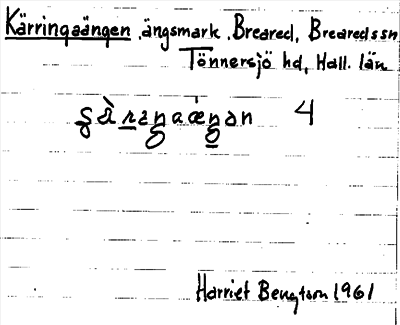 Kärringaängen, ängsmark, Breared, Breareds sn
Tönnersjö hd, Hall. län
4
Harriet Bengtson 1961